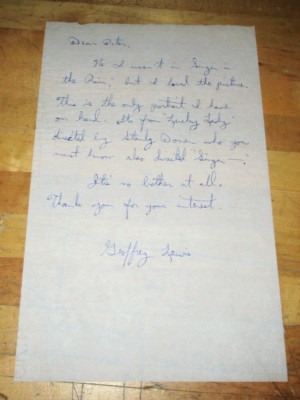 Dear Peter,
No I wasn't in "Singin in
the Rain," but I loved the picture.
This is the only portrait I have
on hand. It's from "Lucky Lady"
directed by Stanley Donen who you
must know also directed "Singin —."
It's no bother at all.
Thank you for your interest.
Geoffrey Lewis